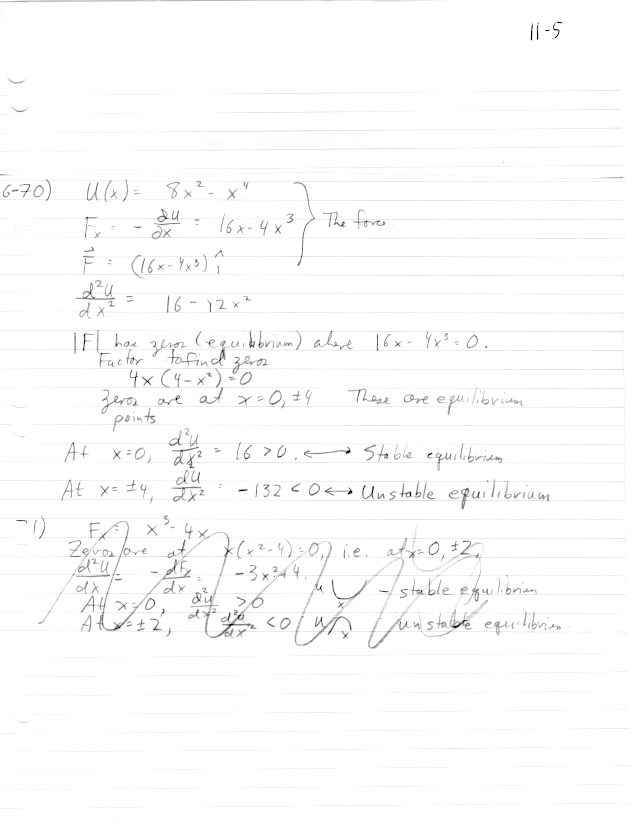 11-5
6-70) U(x) = 8x² - x⁴
Fₓ = - ∂U/∂x = 16x - 4x³ } The force.
F⃗ = (16x - 4x³) î
d²U/dx² = 16 - 12x²
|F| has zeros (equilibrium) where 16x - 4x³ = 0.
Factor to find zeros
4x (4 - x²) = 0
Zeros are at x = 0, ±4 These are equilibrium
points
At x=0, d²U/dx² = 16 > 0. ⟷ Stable equilibrium
At x = ±4, dU/dx² = -132 < 0 ⟷ Unstable equilibrium
71) Fₓ = x³ - 4x
Zeros are at x(x² - 4) = 0, i.e. at x = 0, ±2,
d²U/dx = - dFₓ/dx = -3x² + 4.
At x = 0, d²U/dx² > 0 U x - stable equilibrium
At x = ±2, d²U/dx² < 0 U x unstable equilibrium.